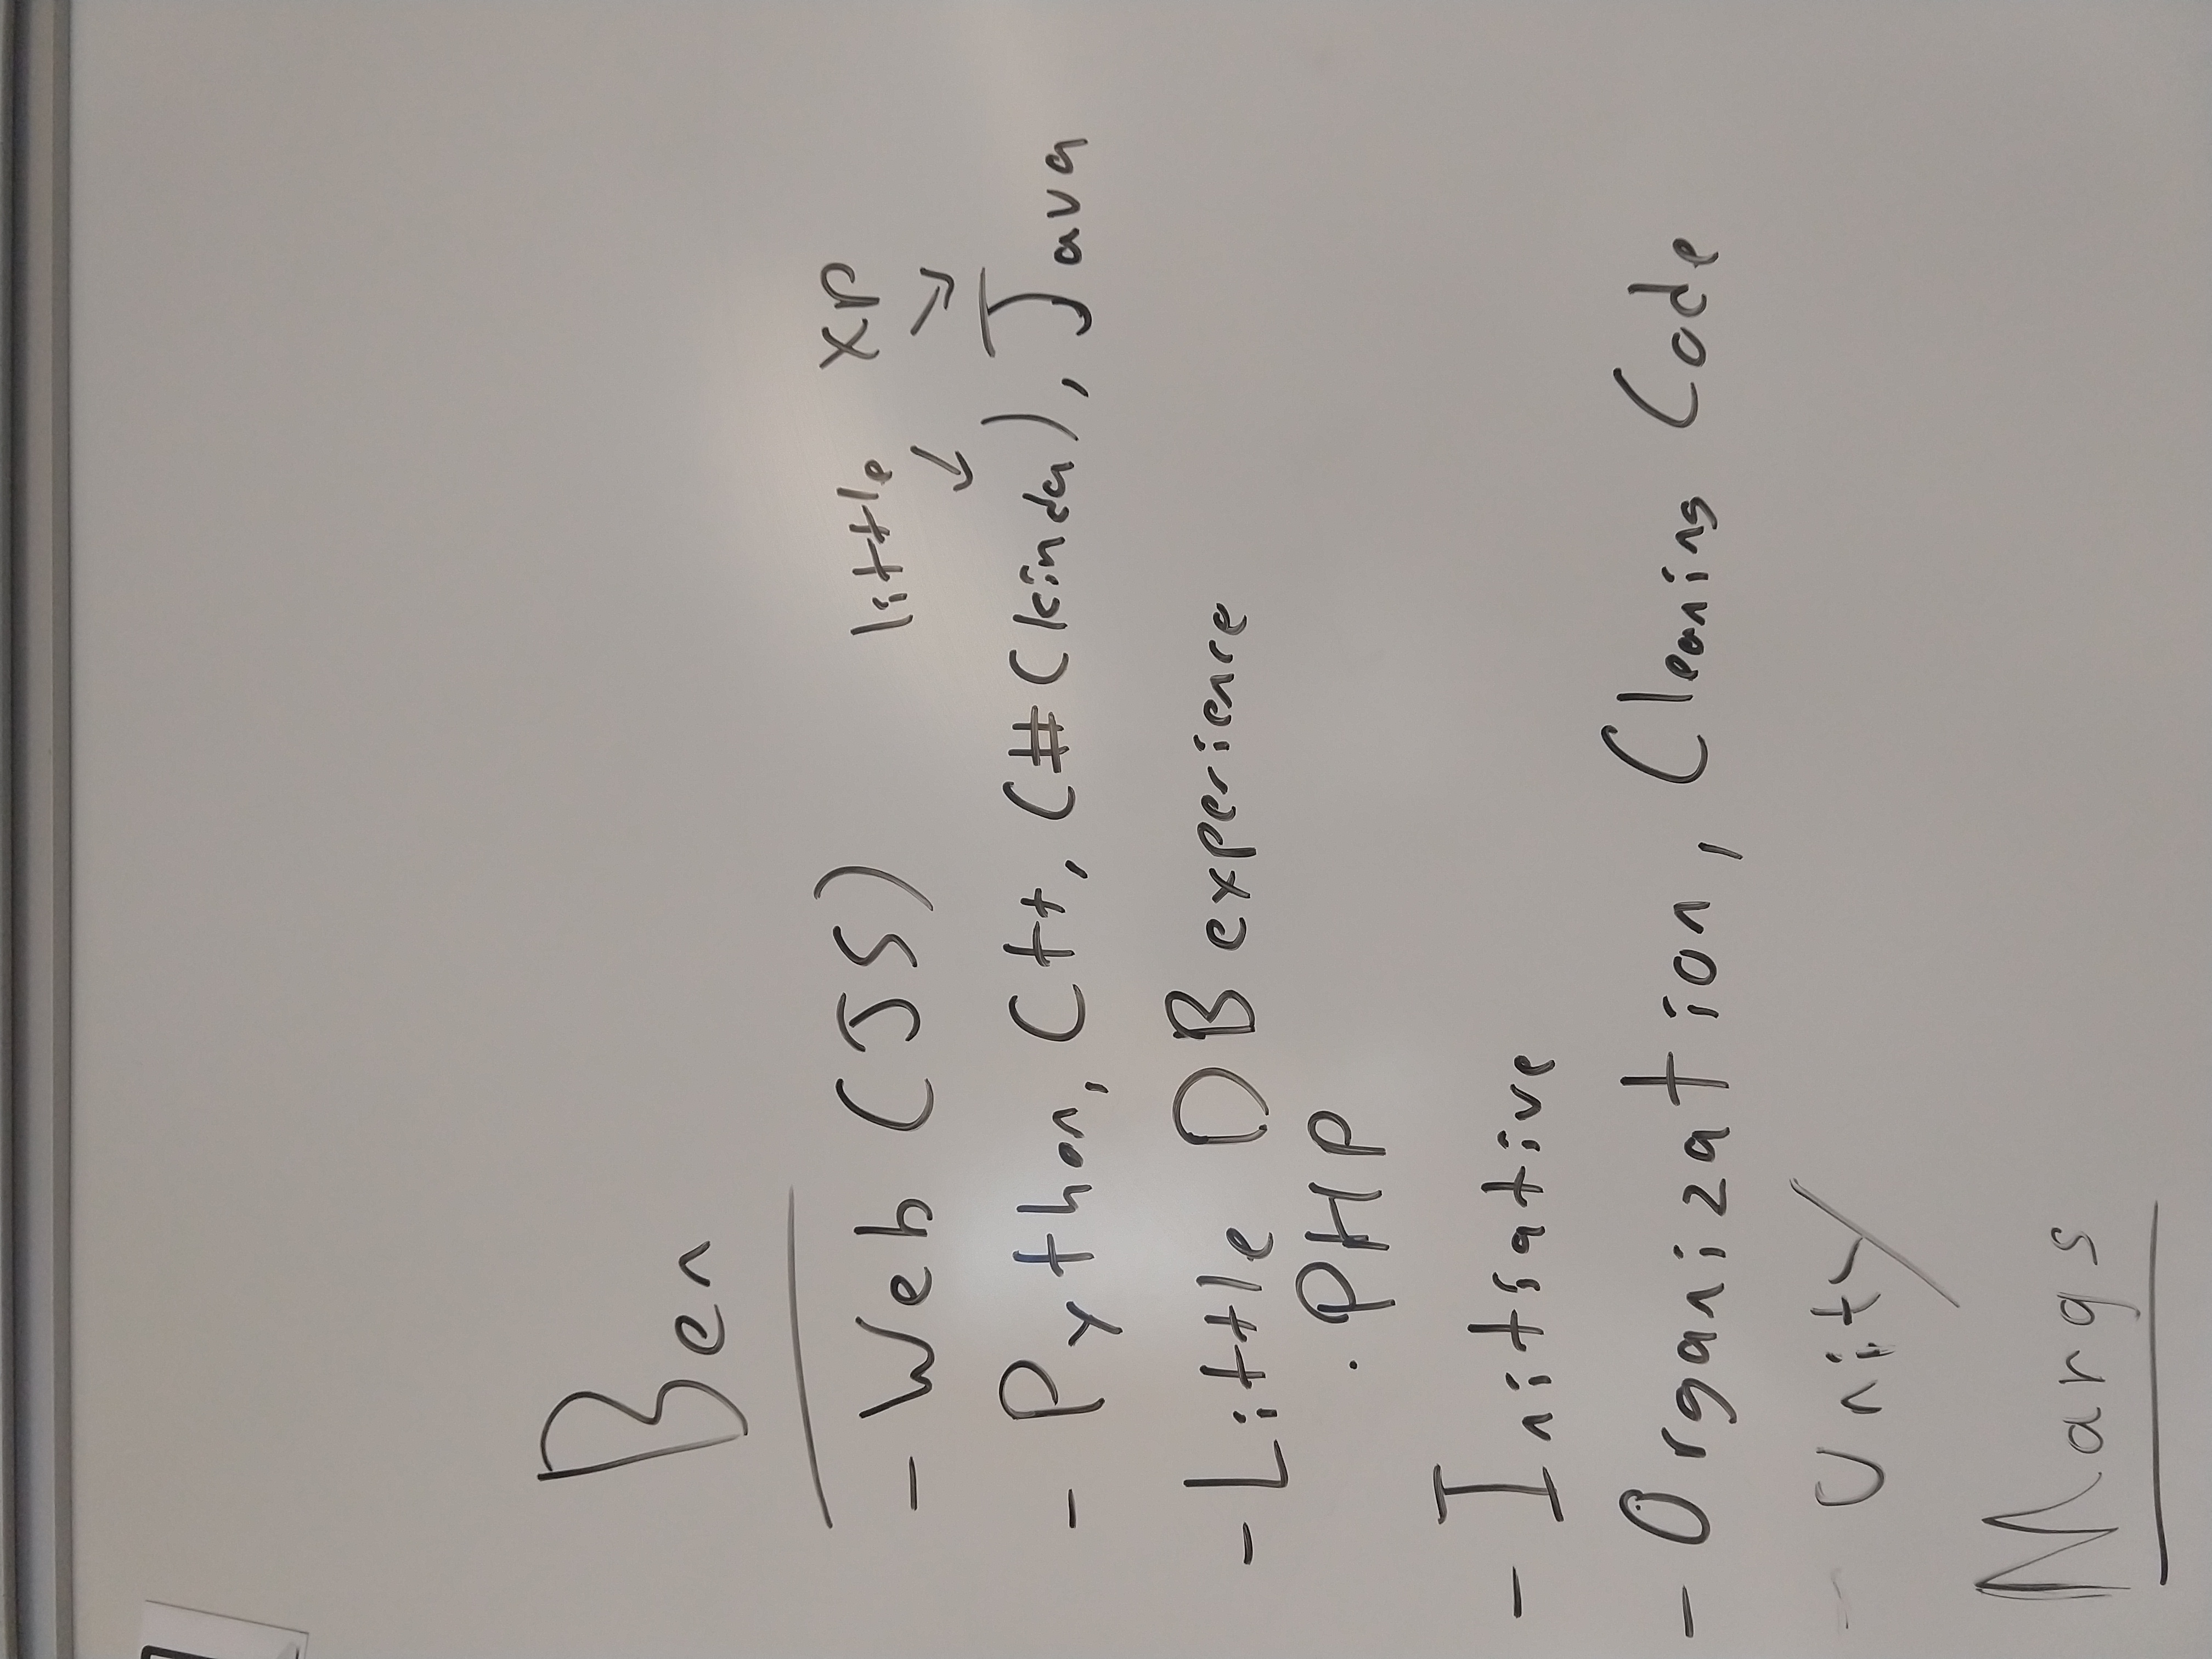 Ben
- Web (JS)
little xp
- Python, C++, C# (kinda), Java
- Little DB experience
· PHP
- Initiative
- Organization, Cleaning Code
- Unity
Margs